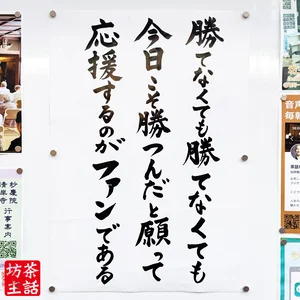 勝てなくても勝てなくても
今日こそ勝つんだと願って
応援するのがファンである
妙慶院
清岸寺
行事案内
音声
毎朝
茶話
坊主